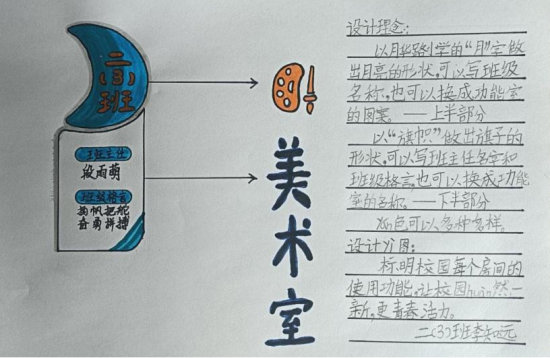 二
(3)
班
班主任
段雨萌
班级格言
扬帆把舵
奋勇拼搏
美
术
室
设计理念:
以月华路小学的“月”字做
出月亮的形状,可以写班级
名称,也可以换成功能室
的图案。——上半部分
以“旗帜”做出旗子的
形状,可以写班主任名字和
班级格言,也可以换成功能
室的名称。——下半部分
颜色可以多种多样。
设计意图:
标明校园每个房间的
使用功能,让校园huàn然一
新,更青春活力。
二(3)班李知远